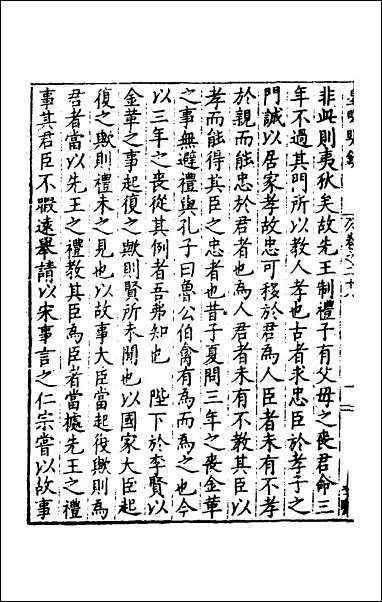 卷之二十八
非此則夷狄矣故先王制禮子有父母之喪君命三
年不過其門所以教人孝也古者求忠臣於孝子之
門誠以居家孝故忠可移於君為人臣者未有不孝
於親而能忠於君者也為人君者未有不教其臣以
孝而能得其臣之忠者也昔子夏問三年之喪金革
之事無避禮與孔子曰魯公伯禽有為而為之也今
以三年之喪從其例者吾弗知也　陛下於李賢以
金革之事起復之歟則賢所未聞也以國家大臣起
復之歟則禮未之見也以故事大臣當起復歟則為
君者當以先王之禮教其臣為臣者當據先王之禮
事其君臣不暇遠舉請以宋事言之仁宗嘗以故事